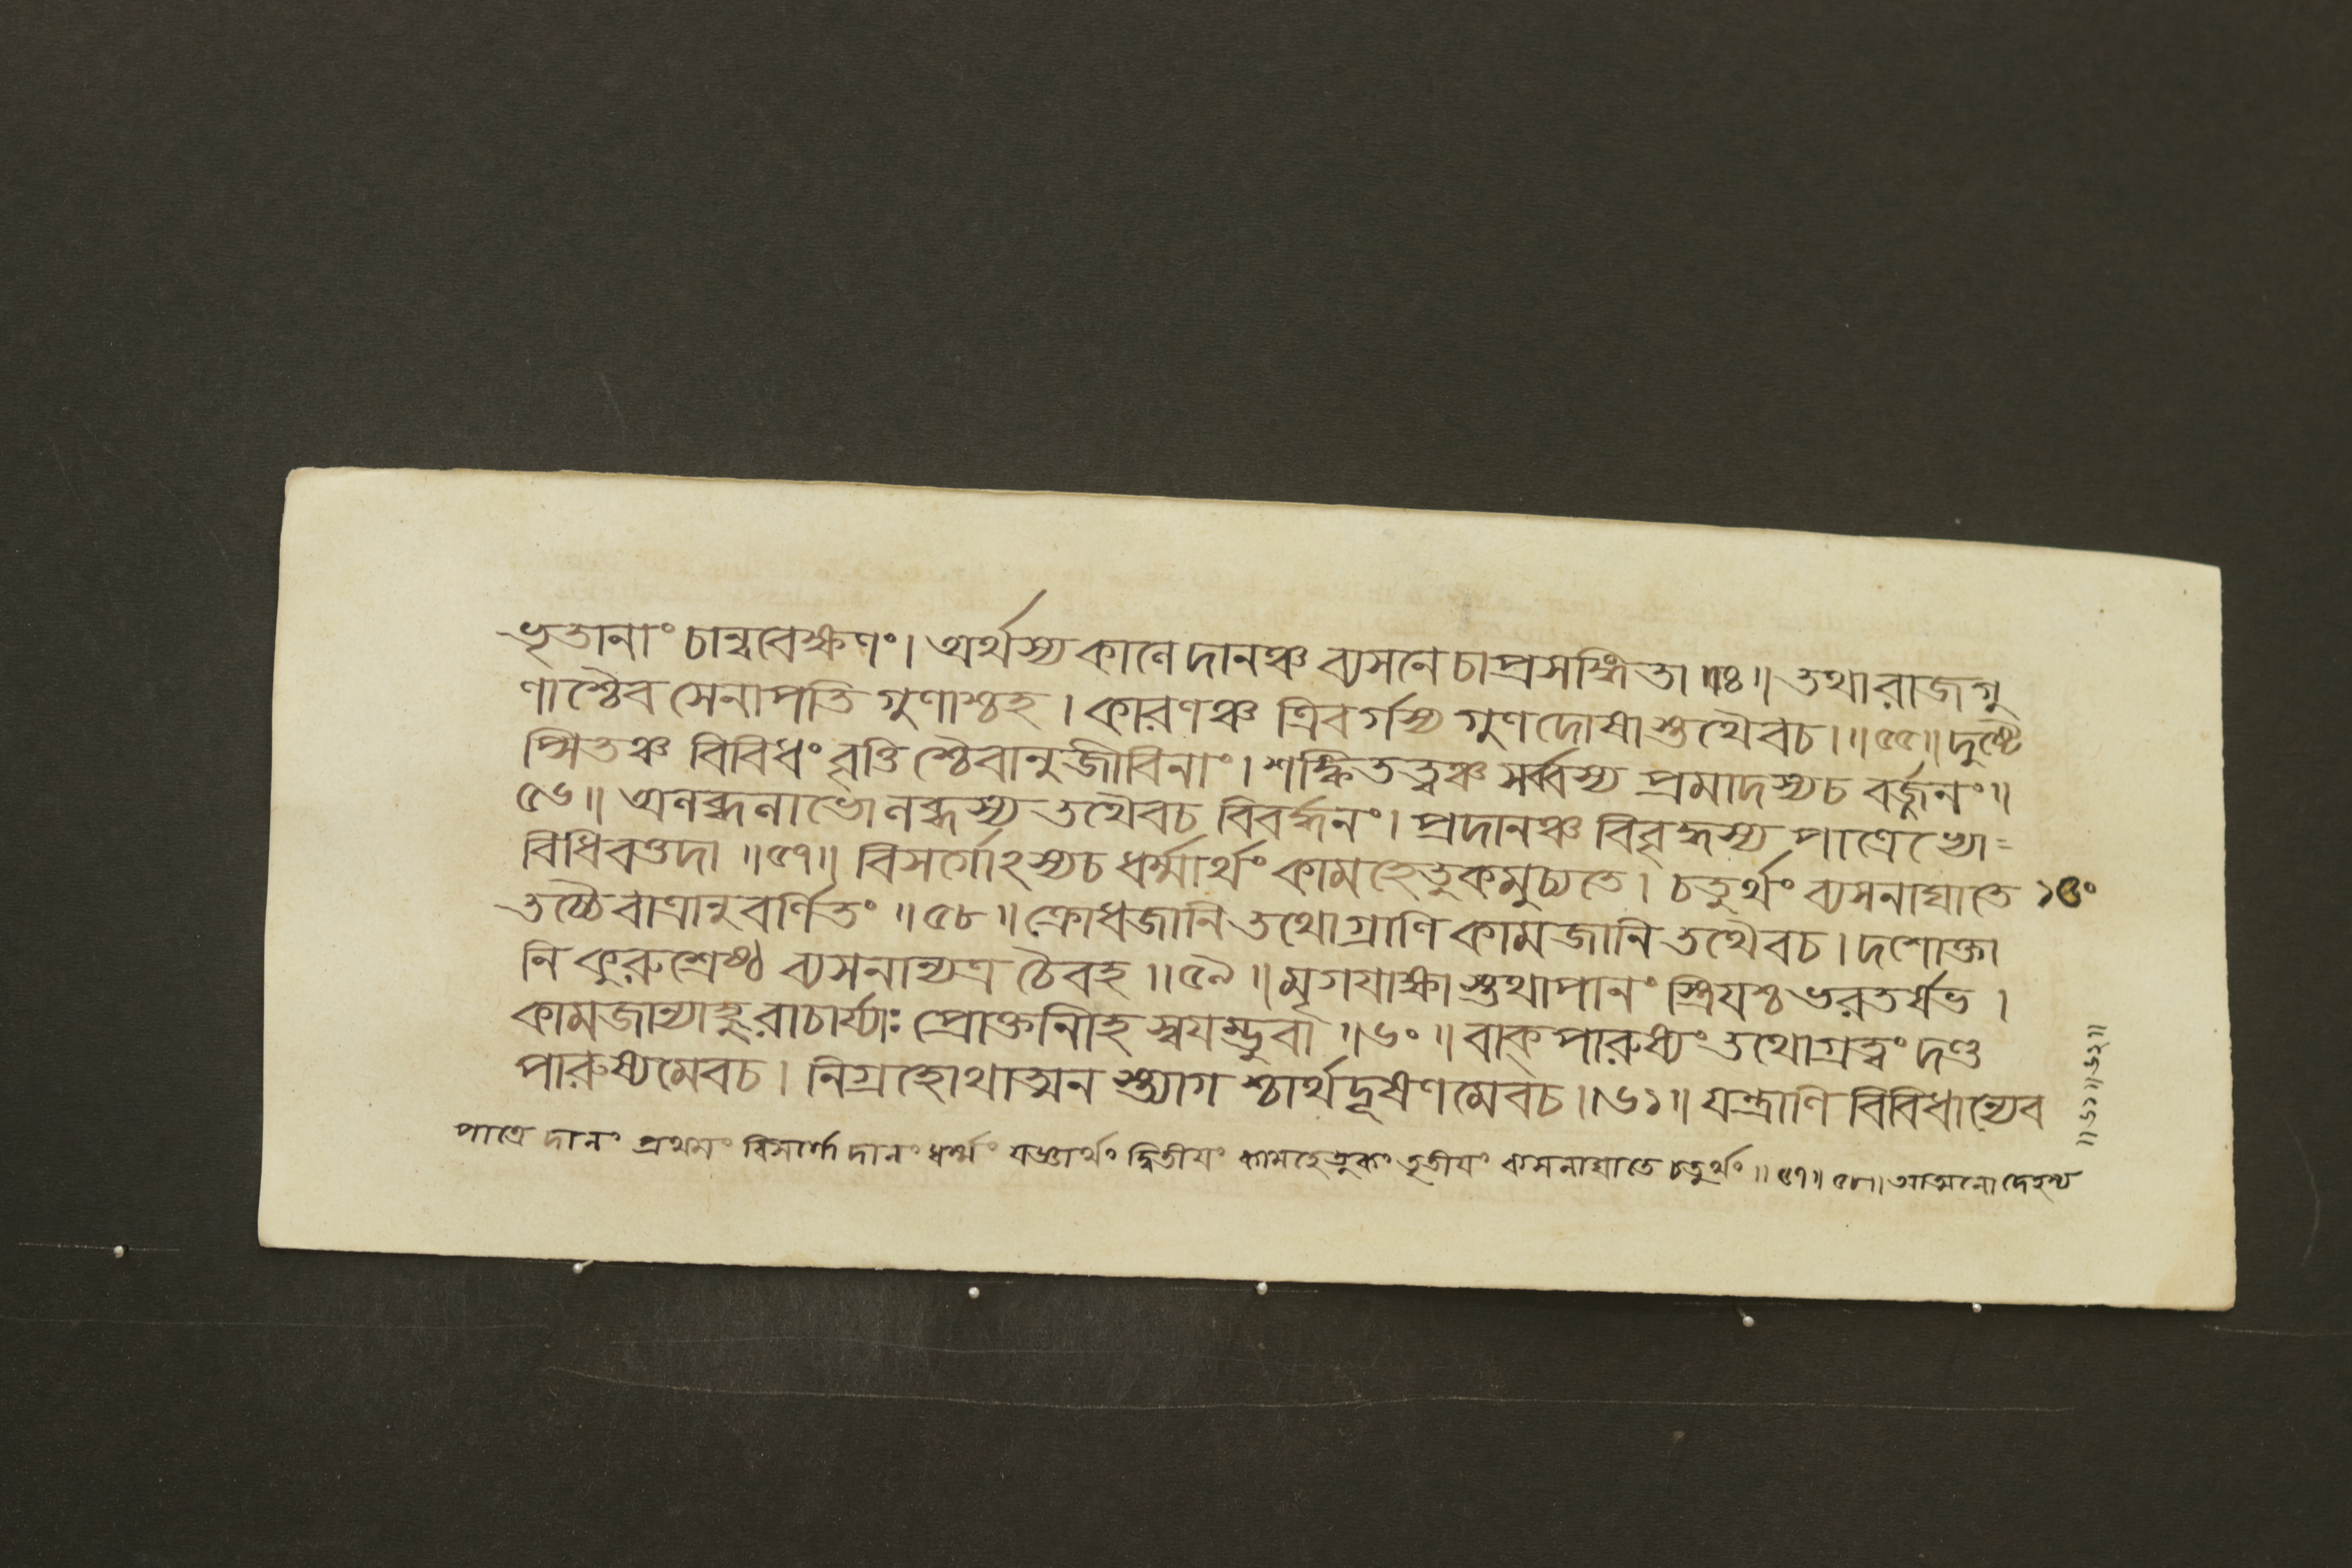 ভৃতানাং চান্ববেক্ষণং। অর্থস্য কালে দানঞ্চ ব্যসনে চাপ্রসঙ্গিতা ॥৫৪॥ তথা রাজগু
ণাশ্চৈব সেনাপতি গুণাশ্চহ। কারণঞ্চ ত্রিবর্গস্য গুণদোষাস্তথৈবচ।॥৫৫॥ দুশ্চে
ষ্পিতঞ্চ বিবিধং বৃত্তিশ্চৈবানুজীবিনাং। শঙ্কিতত্বঞ্চ সর্ব্বস্য প্রমাদস্যচ বর্জ্জনং॥
৫৬॥ অলব্ধলাভোলব্ধস্য তথৈবচ বিবর্দ্ধনং। প্রদানঞ্চ বিবৃদ্ধস্য পাত্রেভ্যো=
বিধিবত্তদা ॥৫৭॥ বিসর্গোঽস্যচ ধর্ম্মার্থং কামহেতুকমুচ্যতে। চতুর্থং ব্যসনাঘাতে
তচ্চৈবাত্রানুবর্ণিতং ॥৫৮॥ ক্রোধজানি তথোগ্রাণি কামজানি তথৈবচ। দশোক্তা
নি কুরুশ্রেষ্ঠ ব্যসনান্যত্র চৈবহ ॥৫৯॥ মৃগয়াক্ষাস্তথাপানং স্ত্রিযশ্চ ভরতর্ষভ।
কামজান্যাহুরাচার্য্যাঃ প্রোক্তানীহ স্বযম্ভুবা ॥৬০॥ বাক্পারুষ্যং তথোগ্রত্বং দণ্ড
পারুষ্যমেবচ। নিগ্রহোথাত্মনস্ত্যাগশ্চার্থদূষণমেবচ।॥৬১॥ যন্ত্রাণি বিবিধান্যেব
পাত্রে দানং প্রথমং বিসর্গো দানং ধর্ম্মং যজ্ঞার্থং দ্বিতীযং কামহেতুকং তৃতীযং ব্যসনাঘাতে চতুর্থং ॥৫৭॥৫৮॥ আত্মনো দেহস্য
॥৬১॥৬২॥